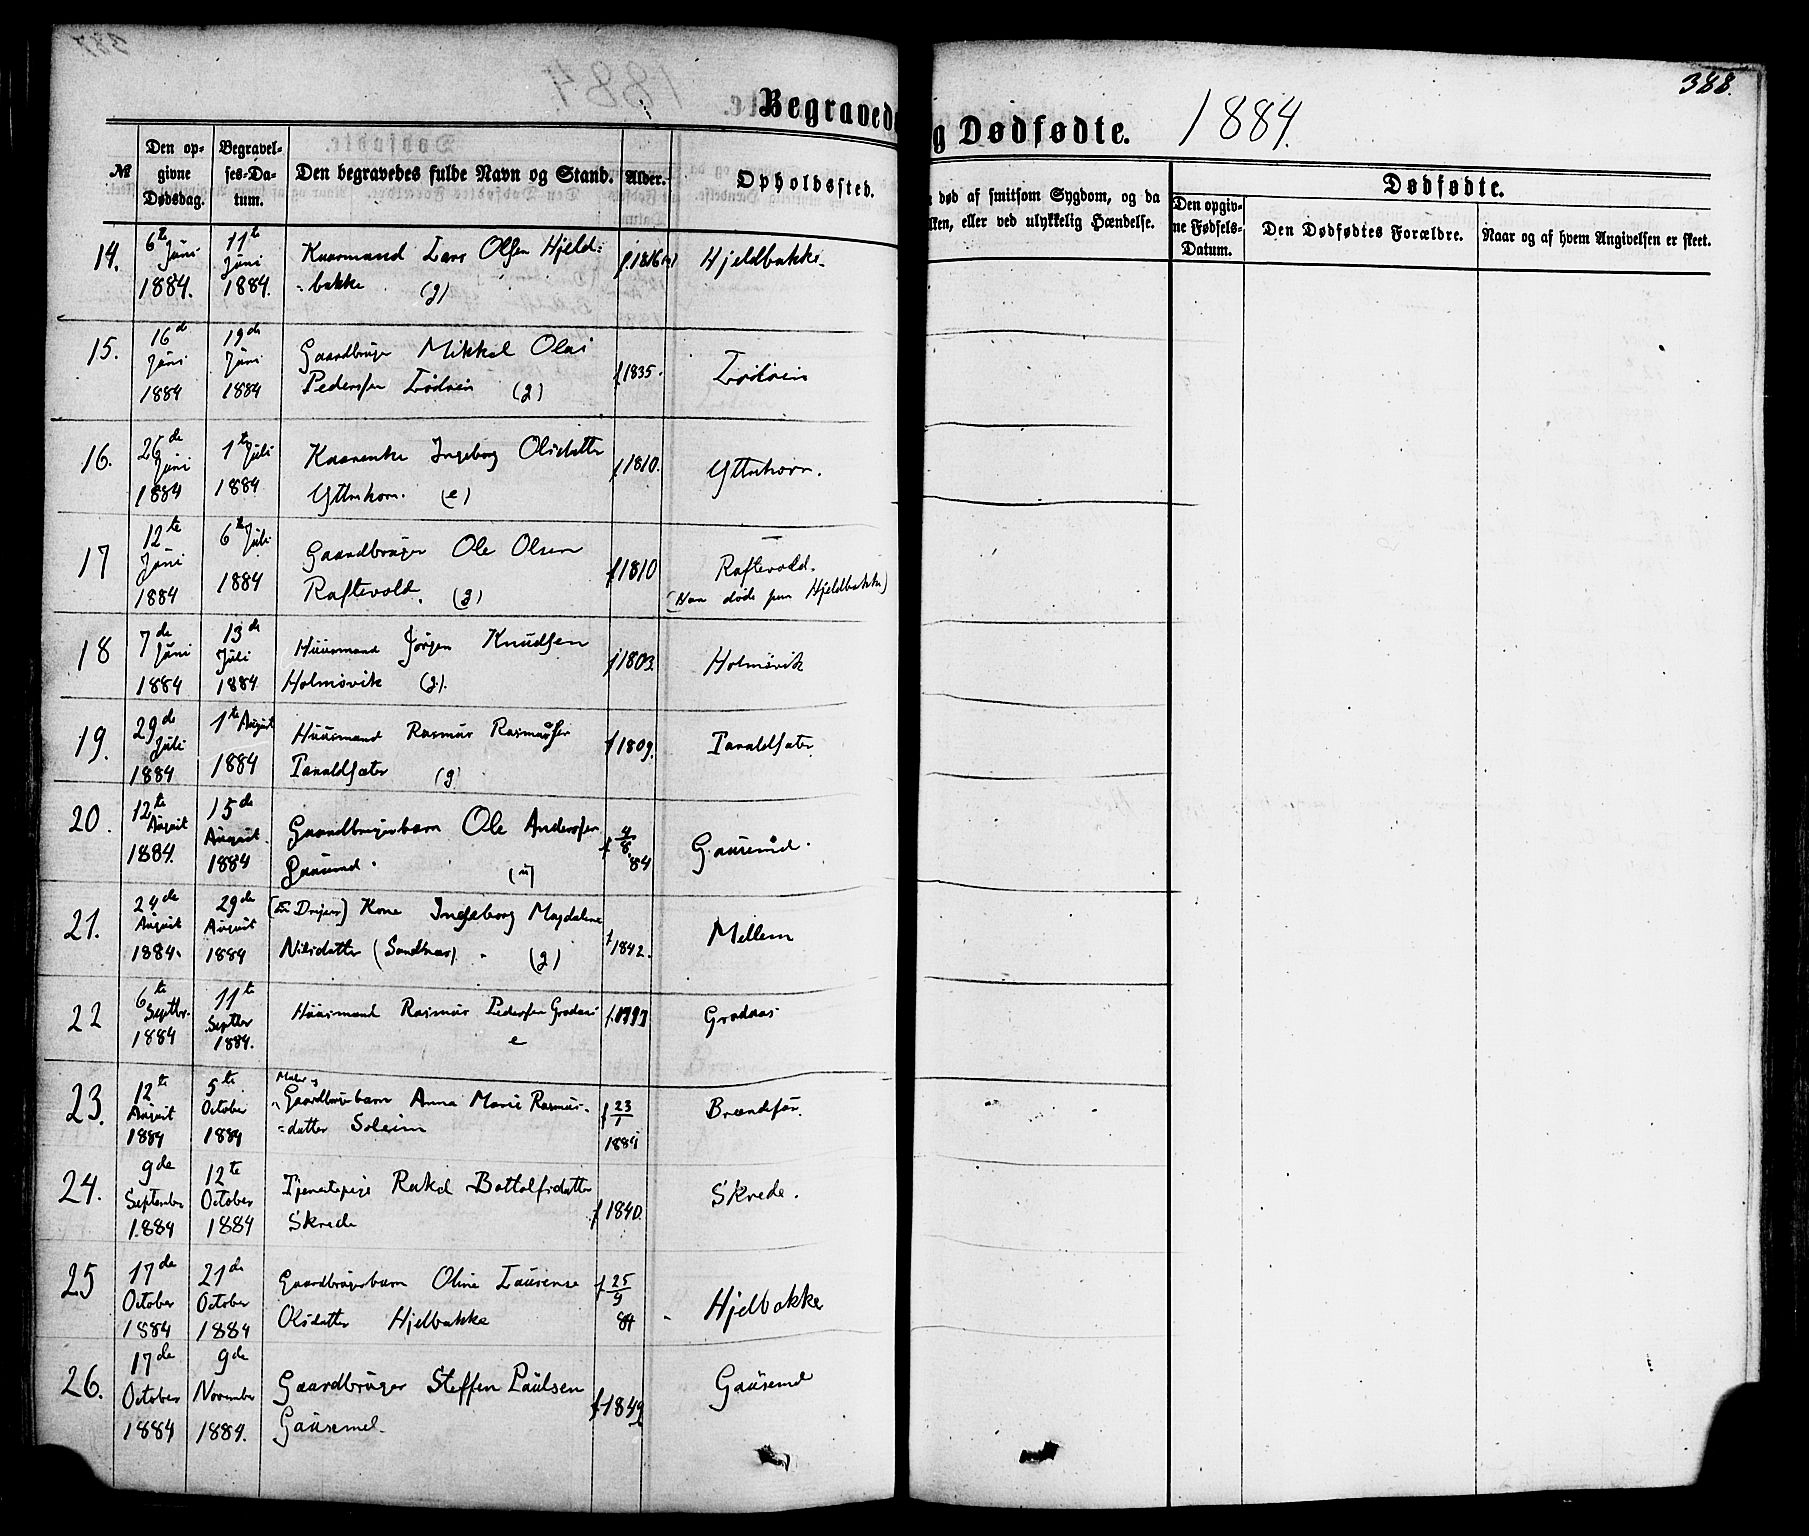 388.
Begravede og Dødfødte. 1884.
№ Den opgivne Dødsdag. Begravelses-Datum. Den begravedes fulde Navn og Stand. Alder. Opholdssted.
død af smitsom Sygdom, og da
ken, eller ved ulykkelig Hændelse.
Dødfødte.
Den opgivne Fødsels-Datum. Den Dødfødtes Forældre. Naar og af hvem Angivelsen er skeet.
14. 6te Juni 1884. 11te Juni 1884. Kaarmand Lars Olsen Hjeld-
-bakke (g) f. 1816 Hjeldbakke.
15. 16de Juni 1884 19de Juni 1884 Gaardbruger Mikkel Olai
Pedersen Lødøen (g) f 1835. Lødøen
16. 26de Juni 1884 1te Juli 1884 Kaarenke Ingeborg Olsdatter
Ytterhorn. (e) f 1810. Ytterhorn.
17 12te Juni 1884 6te Juli 1884 Gaardbruger Ole Olsen
Raftevold. (g) f 1810 Raftevold.
(Han døde paa Hjeldbakke)
18 7de Juni 1884 13de Juli 1884 Huusmand Jørgen Knudsen
Holmøvik (g). f 1803. Holmøvik
19. 29de Juli 1884 1te August 1884 Huusmand Rasmus Rasmussen
Taraldsæter (g) f 1809. Taraldsæter
20. 12te August 1884. 15de August 1884 Gaardbrugerbarn Ole Andersen
Gausemel (u) f 4/8 84 Gausemel.
21. 24de August 1884. 29de August 1884 Kone Ingeborg Magdalene
Nilsdatter (Sandnæs). (g) f 1842. Mellem
22 6te Septbr. 1884 11te Septbr 1884. Huusmand Rasmus Pedersen Grodaas
e f. 1797 Grodaas
23. 12te August 1884 5te October 1884 Maler og
Gaardbrugerbarn Anna Marie Rasmus-
-datter Soleim f 23/7 1884 Brændefur.
24. 9de September 1884 12te October 1884 Tjenestepige Rakel Bottolfsdatter
Skrede f 1840. Skrede.
25 17de October 1884 21de October 1884 Gaardbrugerbarn Oline Laurense
Olsdatter Hjelbakke f 25/9 84 Hjelbakke
26. 17de October 1884 9de November 1884. Gaardbruger Steffen Paulsen
Gausemel. f. 1849 Gausemel